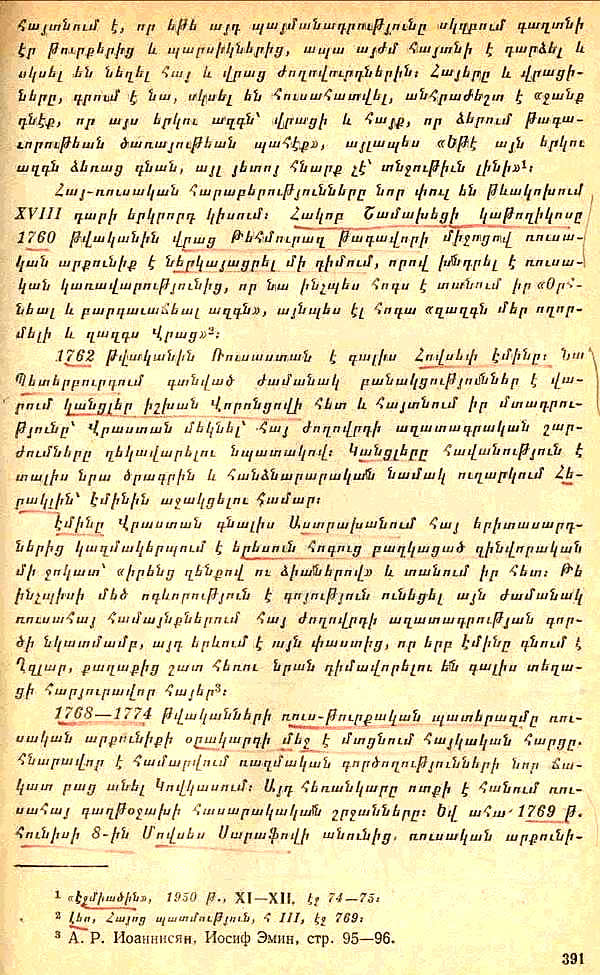 հայտնում է, որ եթե այդ պայմանագրությունը սկզբում գաղտնի
էր թուրքերից և պարսիկներից, ապա այժմ հայտնի է դարձել և
սկսել են նեղել հայ և վրաց ժողովուրդներին։ Հայերը և վրացի-
ները, գրում է նա, սկսել են հուսահատվել, անհրաժեշտ է «ջանք
դնէք, որ այս երկու ազգն՝ վրացի և հայք, որ ձերում թագա-
ւորութեան ծառայութեան պահէք», այլապես «Եթէ այն երկու
ազգն ձեռաց գնան, այլ յետոյ հնարք չէ՝ տնջութիւն լինի»¹։
Հայ-ռուսական հարաբերությունները նոր փուլ են թևակոխում
XVIII դարի երկրորդ կիսում։ Հակոբ Շամախեցի կաթողիկոսը
1760 թվականին վրաց Թեհմուրազ թագավորի միջոցով ռուսա-
կան արքունիք է ներկայացրել մի դիմում, որով խնդրել է ռուսա-
կան կառավարությունից, որ նա ինչպես հոգս է տանում իր «Օրհ-
նեալ և բարգաւաճեալ ազգն», այնպես էլ հոգա «զազգն մեր ողոր-
մելի և զազգս Վրաց»²։
1762 թվականին Ռուսաստան է գալիս Հովսեփ Էմինը։ Նա
Պետերբուրգում գտնված ժամանակ բանակցություններ է վա-
րում կանցլեր իշխան Վորոնցովի հետ և հայտնում իր մտադրու-
թյունը՝ Վրաստան մեկնել՝ հայ ժողովրդի ազատագրական շար-
ժումները ղեկավարելու նպատակով։ Կանցլերը հավանություն է
տալիս նրա ծրագրին և հանձնարարական նամակ ուղարկում Հե-
րակլին՝ Էմինին աջակցելու համար։
Էմինը Վրաստան գնալիս Աստրախանում հայ երիտասարդ-
ներից կազմակերպում է երեսուն հոգուց բաղկացած զինվորական
մի ջոկատ՝ «իրենց զենքով ու ձիաներով» և տանում իր հետ։ Թե
ինչպիսի մեծ ոգևորություն է գոյություն ունեցել այն ժամանակ
ռուսահայ համայնքներում հայ ժողովրդի ազատագրության գոր-
ծի նկատմամբ, այդ երևում է այն փաստից, որ երբ Էմինը գնում է
Ղզլար, քաղաքից շատ հեռու նրան դիմավորելու են գալիս տեղա-
ցի հարյուրավոր հայեր³։
1768—1774 թվականների ռուս-թուրքական պատերազմը ռու-
սական արքունիքի օրակարգի մեջ է մտցնում հայկական հարցը.
Հնարավոր է համարվում ռազմական գործողությունների նոր ճա-
կատ բաց անել Կովկասում։ Այդ հեռանկարը ոտքի է հանում ռու-
սահայ գաղթօջախի հասարակական շրջանները։ Եվ ահա՝ 1769 թ.
հունիսի 8-ին Մովսես Սարաֆովի անունից, ռուսական արքունի-
¹ «Էջմիածին», 1950 թ., XI—XII, էջ 74—75։
² Լեո, Հայոց պատմություն, հ III, էջ 769։
³ А. Р. Иоаннисян, Иосиф Эмин, стр. 95—96.
391